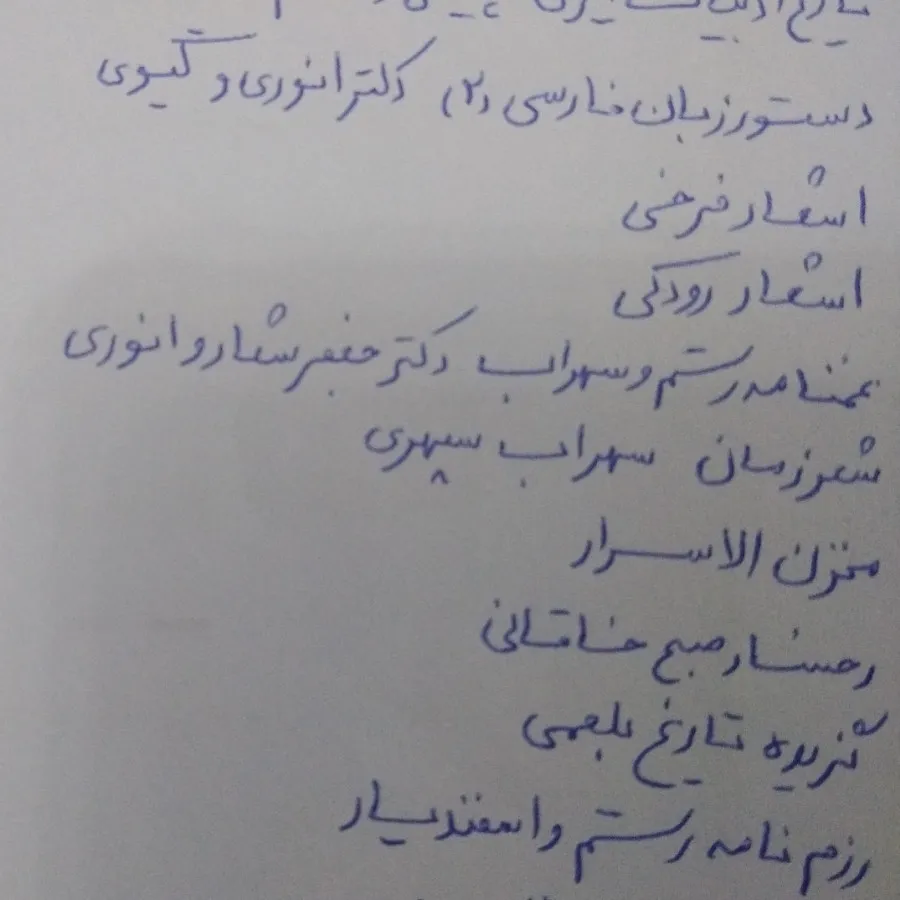 تاریخ ادبیات
دستور زبان فارسی (۲) دکتر انوری و گیوی
اشعار فرخی
اشعار رودکی
غمنامه رستم و سهراب دکتر جعفر شعار و انوری
شعر زمان سهراب سپهری
مخزن الاسرار
رخسار صبح خاقانی
گزیده تاریخ بلعمی
رزم نامه رستم و اسفندیار